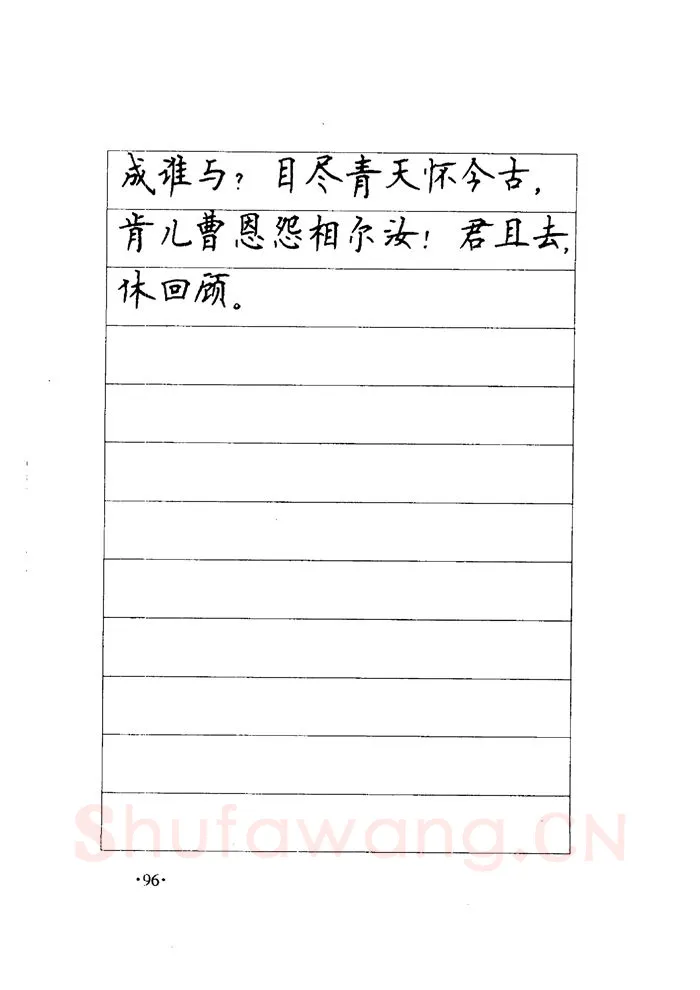 成谁与？目尽青天怀今古，
肯儿曹恩怨相尔汝！君且去，
休回顾。
Shufawang.CN
·96·